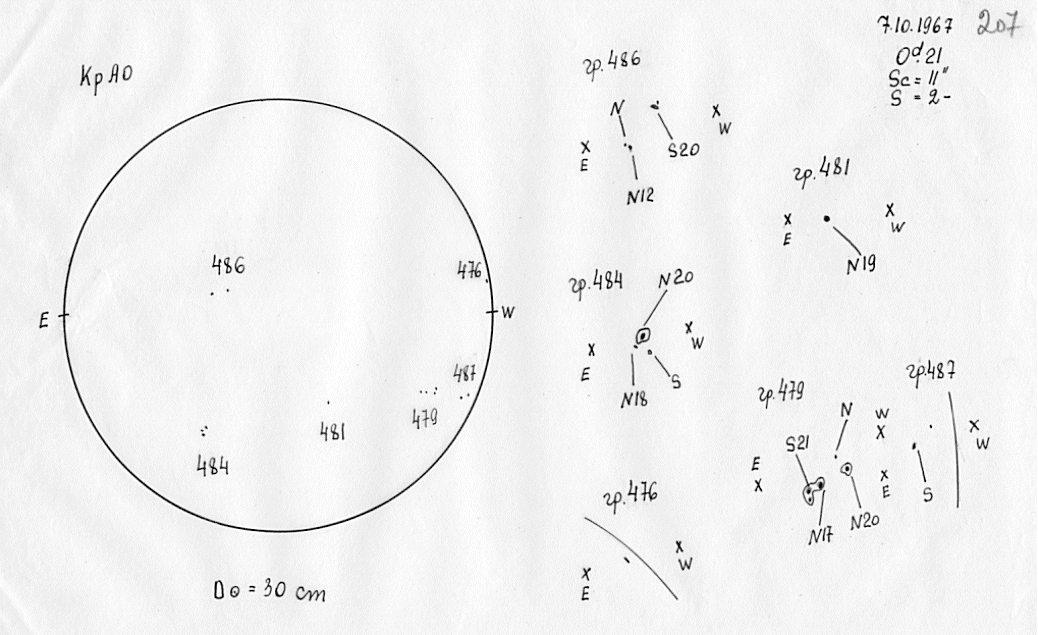 КрАО
7.10.1967 207
0ᵈ.21
Sc = 11"
S = 2-
486
476
E
W
487
479
481
484
D⊙ = 30 cm
гр.486
N
x
W
x
E
S20
N12
гр.481
x
E
x
W
N19
гр.484
N20
x
W
x
E
N18
S
гр.479
N
W
x
S21
E
x
N17
N20
гр.487
x
W
x
E
S
гр.476
x
W
x
E